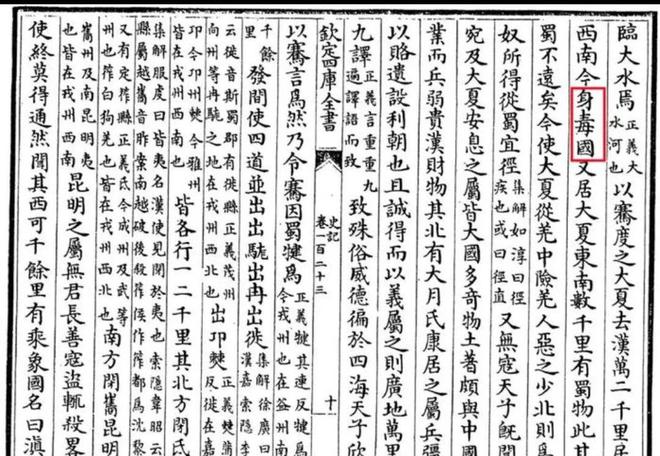 臨大水焉正義大水河也以騫度之大夏去漢萬二千里居
西南今身毒國又居大夏東南數千里有蜀物此其
蜀不遠矣今使大夏從羌中險羌人惡之少北則爲
奴所得從蜀宜徑集解如淳曰徑疾也或曰徑直又無寇天子既聞
宛及大夏安息之屬皆大國多奇物土著頗與中國
業而兵弱貴漢財物其北有大月氏康居之屬兵彊
以賂遺設利朝也且誠得而以義屬之則廣地萬里
九譯正義言重重九遍譯語而致致殊俗威德徧於四海天子欣
欽定四庫全書
史記
卷一百二十三
十
以騫言爲然乃令騫因蜀犍爲正義犍其連反犍爲今戎州也在益州南
千餘里發間使四道並出出駹出冉出徙集解徐廣曰漢嘉索隱李
云徙音斯蜀郡有徙縣正義茂州向州等冉駹之地在戎州西北也出卭僰正義僰蒲反徙在嘉
卭今卭州僰今雅州皆在戎州西南也皆各行一二千里其北方閉氐
集解服虔曰皆夷名漢使見閉於夷也索隱韋昭云縣屬越嶲音昨案南越破後殺筰侯作筰都爲沈黎
又有定筰縣正義氐今成州及武等州也筰白狗羌也皆在戎州西北也南方閉嶲昆明
嶲州及南昆明夷也皆在戎州西南昆明之屬無君長善寇盜輒殺畧
使終莫得通然聞其西可千餘里有乘象國名曰滇